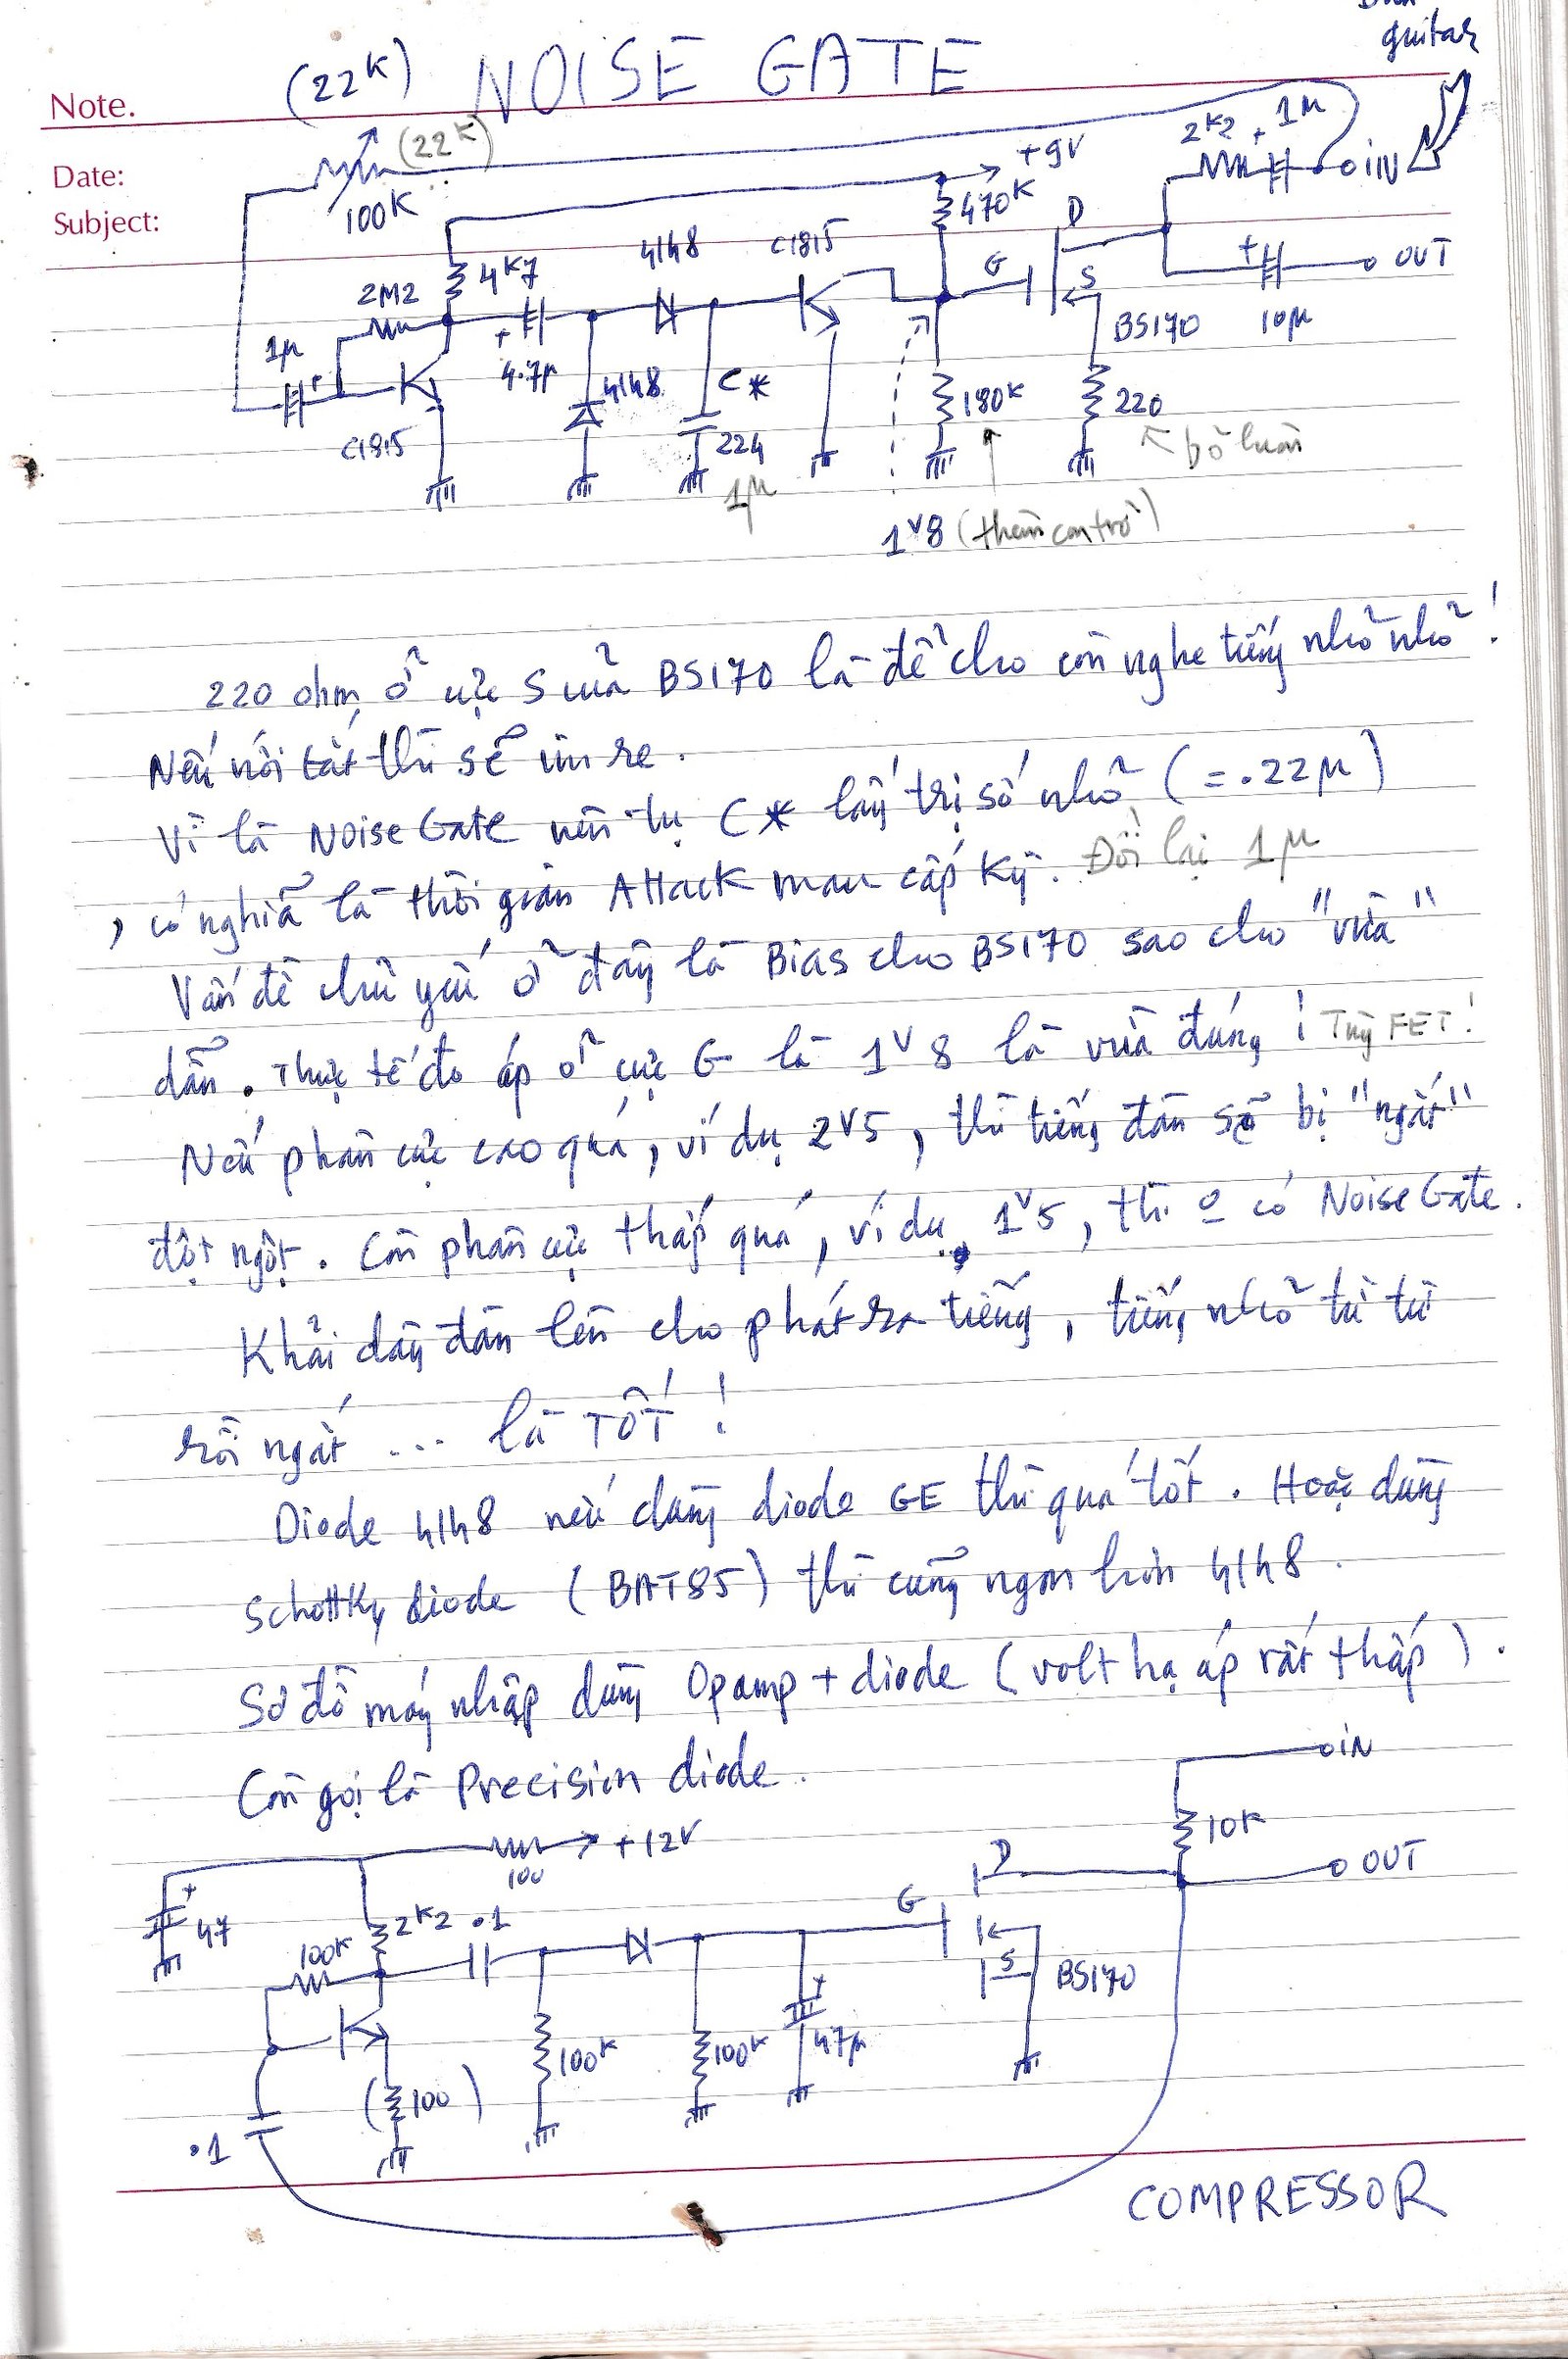 guitar
(22K) NOISE GATE
Note.
Date:
Subject:
(22K)
100K
+9V
2K2
+ 1µ
iN
470K
D
4148
C1815
4K7
2M2
G
S
+
OUT
1µ
+
+
4.7µ
4148
C*
BS170
10µ
180K
220
C1815
224
1µ
bỏ luôn
1V8 (thêm con trở)
220 ohm ở cực S của BS170 là để cho còn nghe tiếng nhỏ nhỏ!
Nếu nối tắt thì sẽ im re.
Vì là Noise Gate nên tụ C* lấy trị số nhỏ (=.22µ)
, có nghĩa là thời gian Attack mau cấp kỳ. Đổi lại 1µ
Vấn đề chủ yếu ở đây là Bias cho BS170 sao cho "vừa"
dẫn. Thực tế đo áp ở cực G là 1V8 là vừa đúng! Tùy FET!
Nếu phân cực cao quá, ví dụ 2V5, thì tiếng đàn sẽ bị "ngắt"
đột ngột. Còn phân cực thấp quá, ví dụ 1V5, thì o có Noise Gate.
Khải dây đàn lên cho phát ra tiếng, tiếng nhỏ từ từ
rồi ngắt ... là TỐT!
Diode 4148 nếu dùng diode GE thì quá tốt. Hoặc dùng
Schottky diode (BAT85) thì cũng ngon hơn 4148.
Sơ đồ máy nhập dùng Opamp + diode (volt hạ áp rất thấp).
Còn gọi là Precision diode.
iN
+12V
100
10K
D
OUT
+
47
2K2
.1
G
100K
S
BS170
+
100K
100K
47µ
(100)
.1
COMPRESSOR